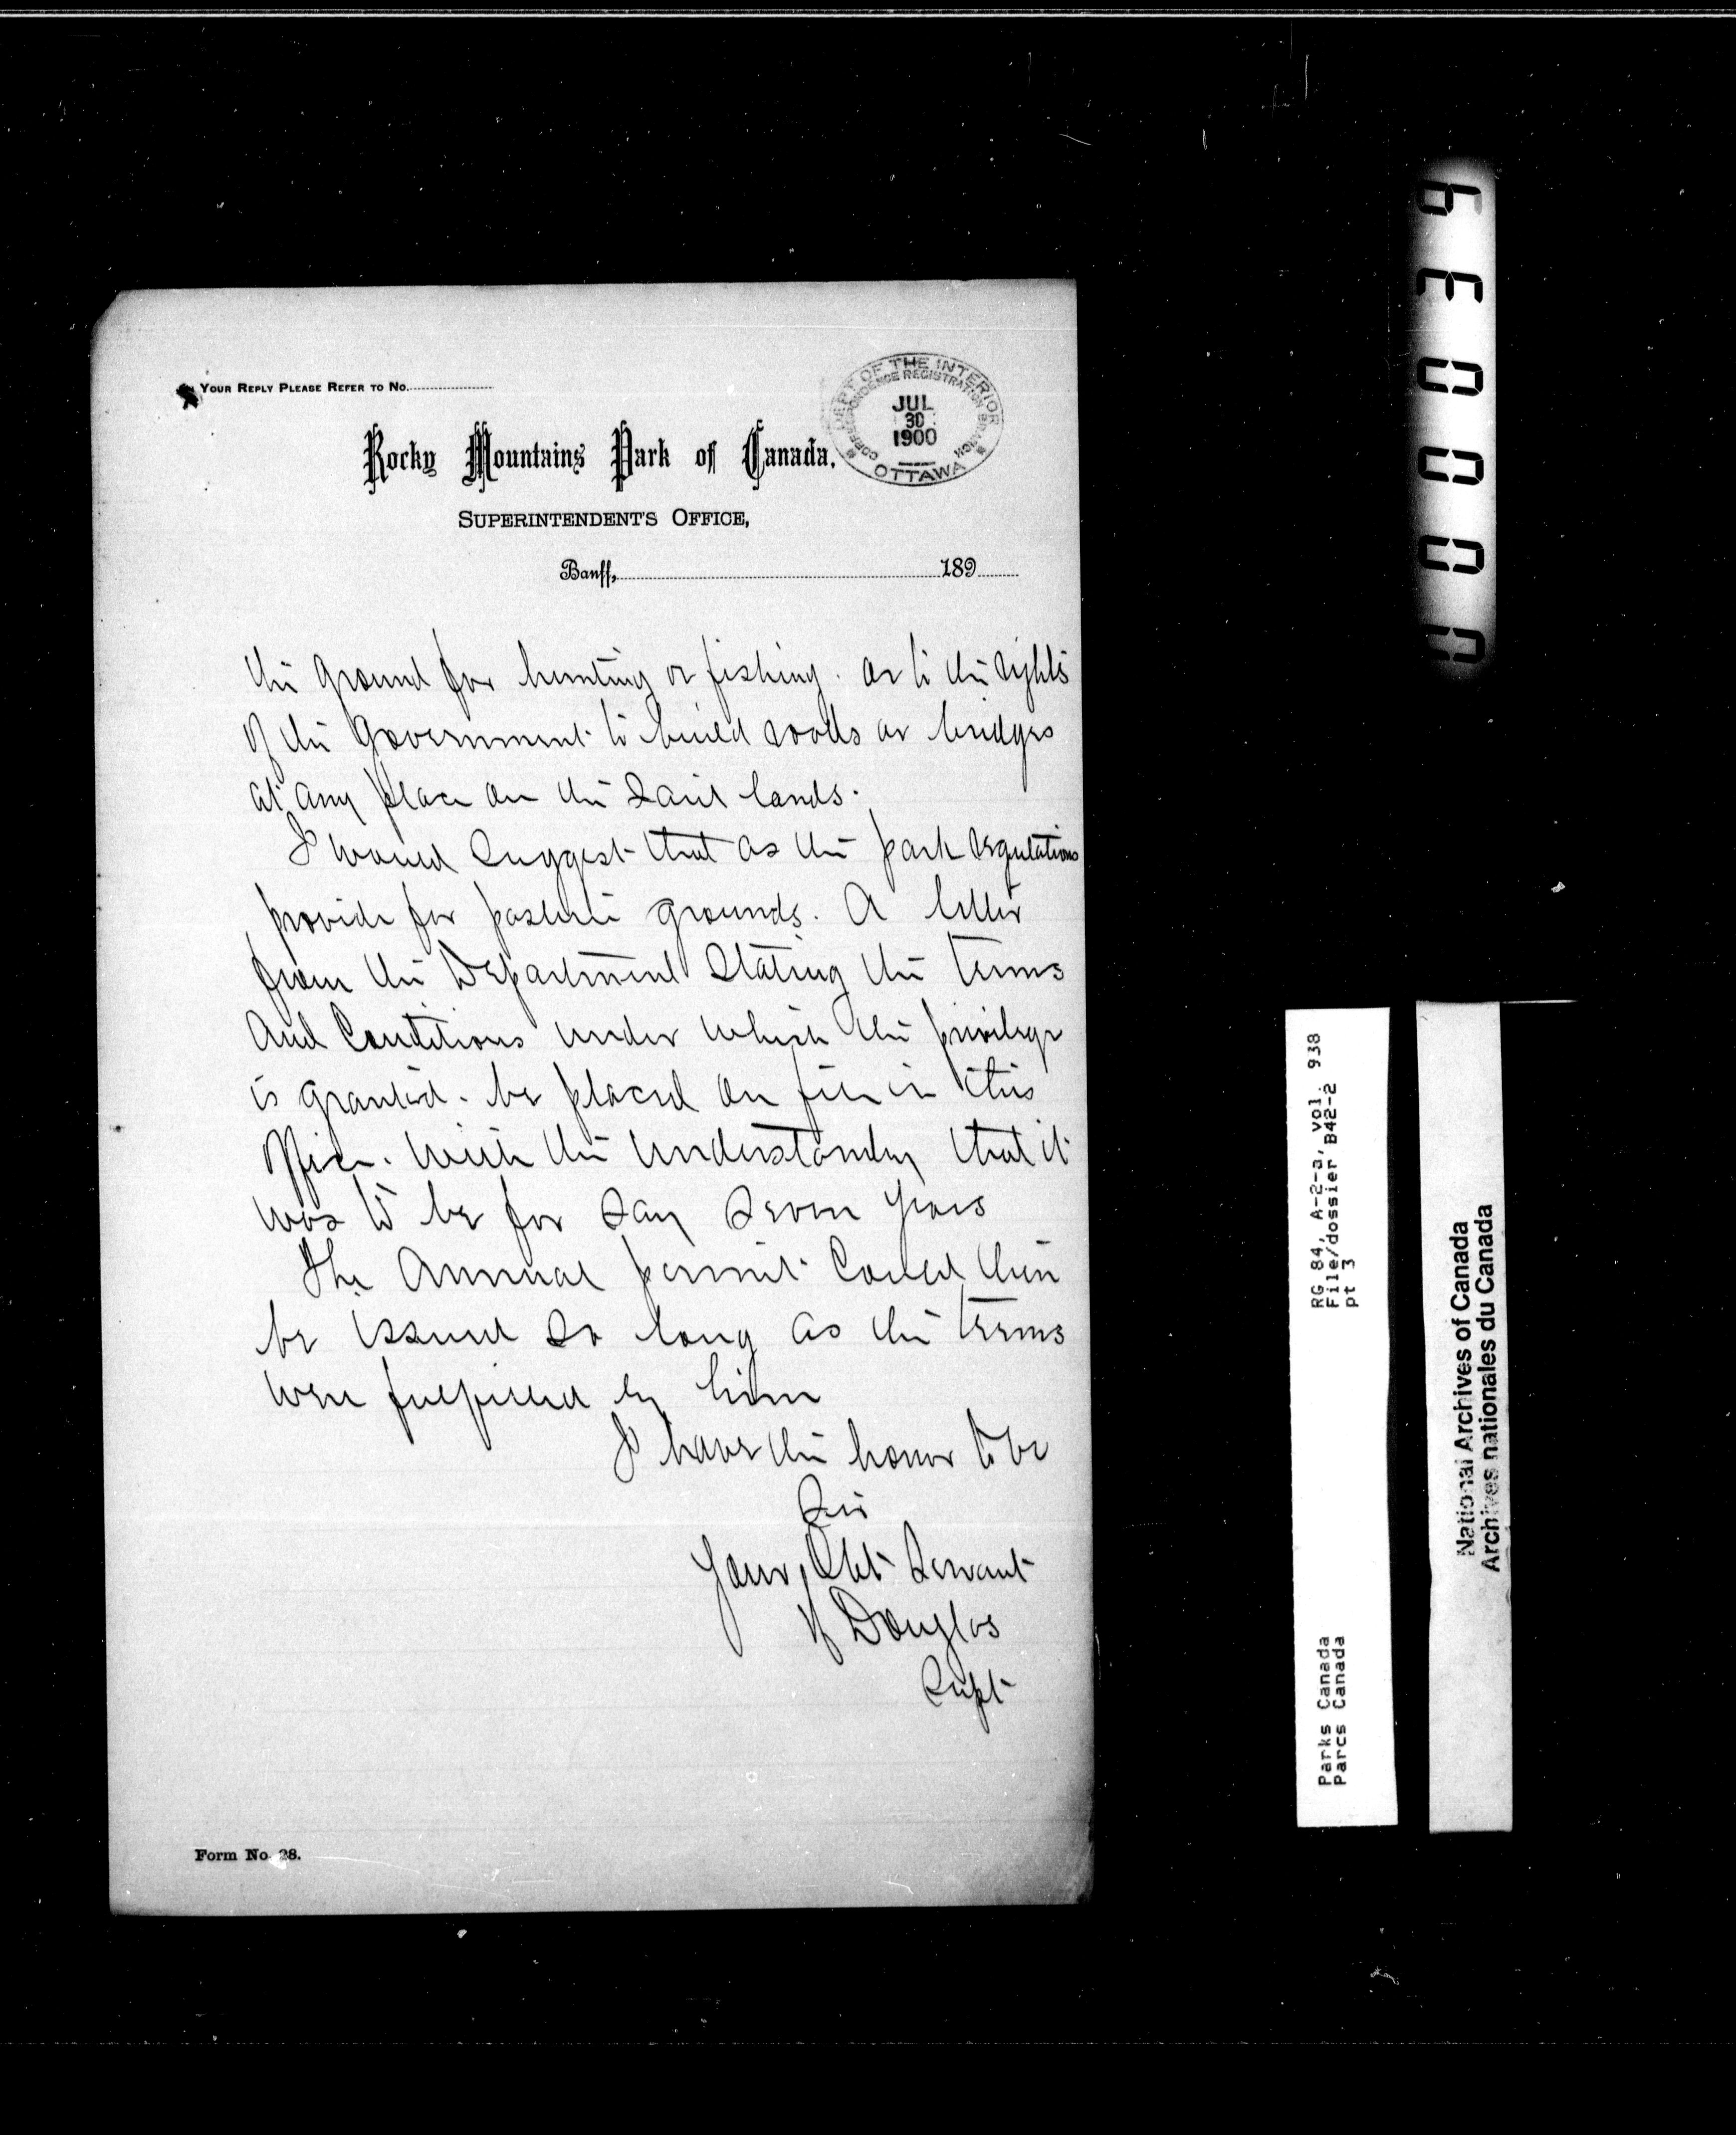 In Your Reply Please Refer to No.
DEP'T OF THE INTERIOR
CORRESPONDENCE REGISTRATION BRANCH
JUL
30
1900
OTTAWA
Rocky Mountains Park of Canada.
SUPERINTENDENT'S OFFICE,
Banff, 189
the ground for hunting or fishing. or to the rights
of the Government to build roads or bridges
at any place on the said lands.
I would suggest that as the park regulations
provide for pasture grounds. A letter
from the Department stating the terms
and Conditions under which the privilege
is granted. be placed on file in this
Office. with the understanding that it
was to be for say seven years
The Annual permit could then
be issued so long as the terms
were fulfilled by him
I have the honor to be
Sir
Your Obt Servant
H Douglas
Supt
Form No. 28.
000039
RG 84, A-2-a, vol. 938
File/dossier B42-2
pt 3
Parks Canada
Parcs Canada
National Archives of Canada
Archives nationales du Canada